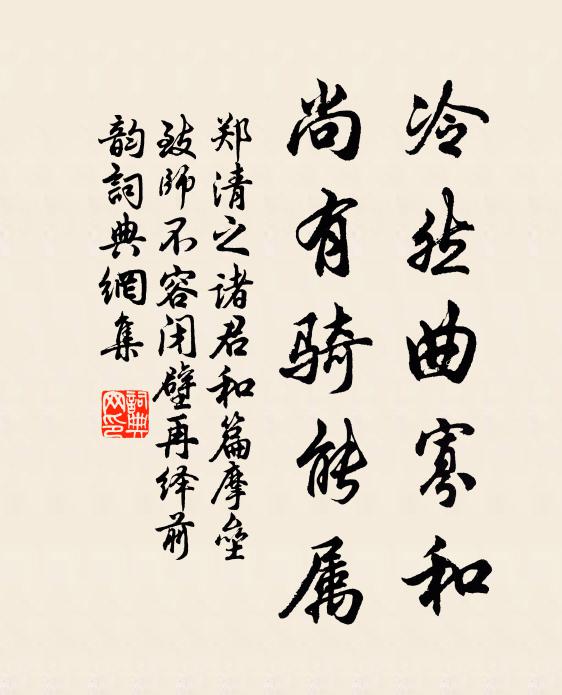 冷然曲寡和
尚有骑能属
郑清之诸君和篇摩垒
致师不容闭壁再绎前
韵词典網集
詞典网印